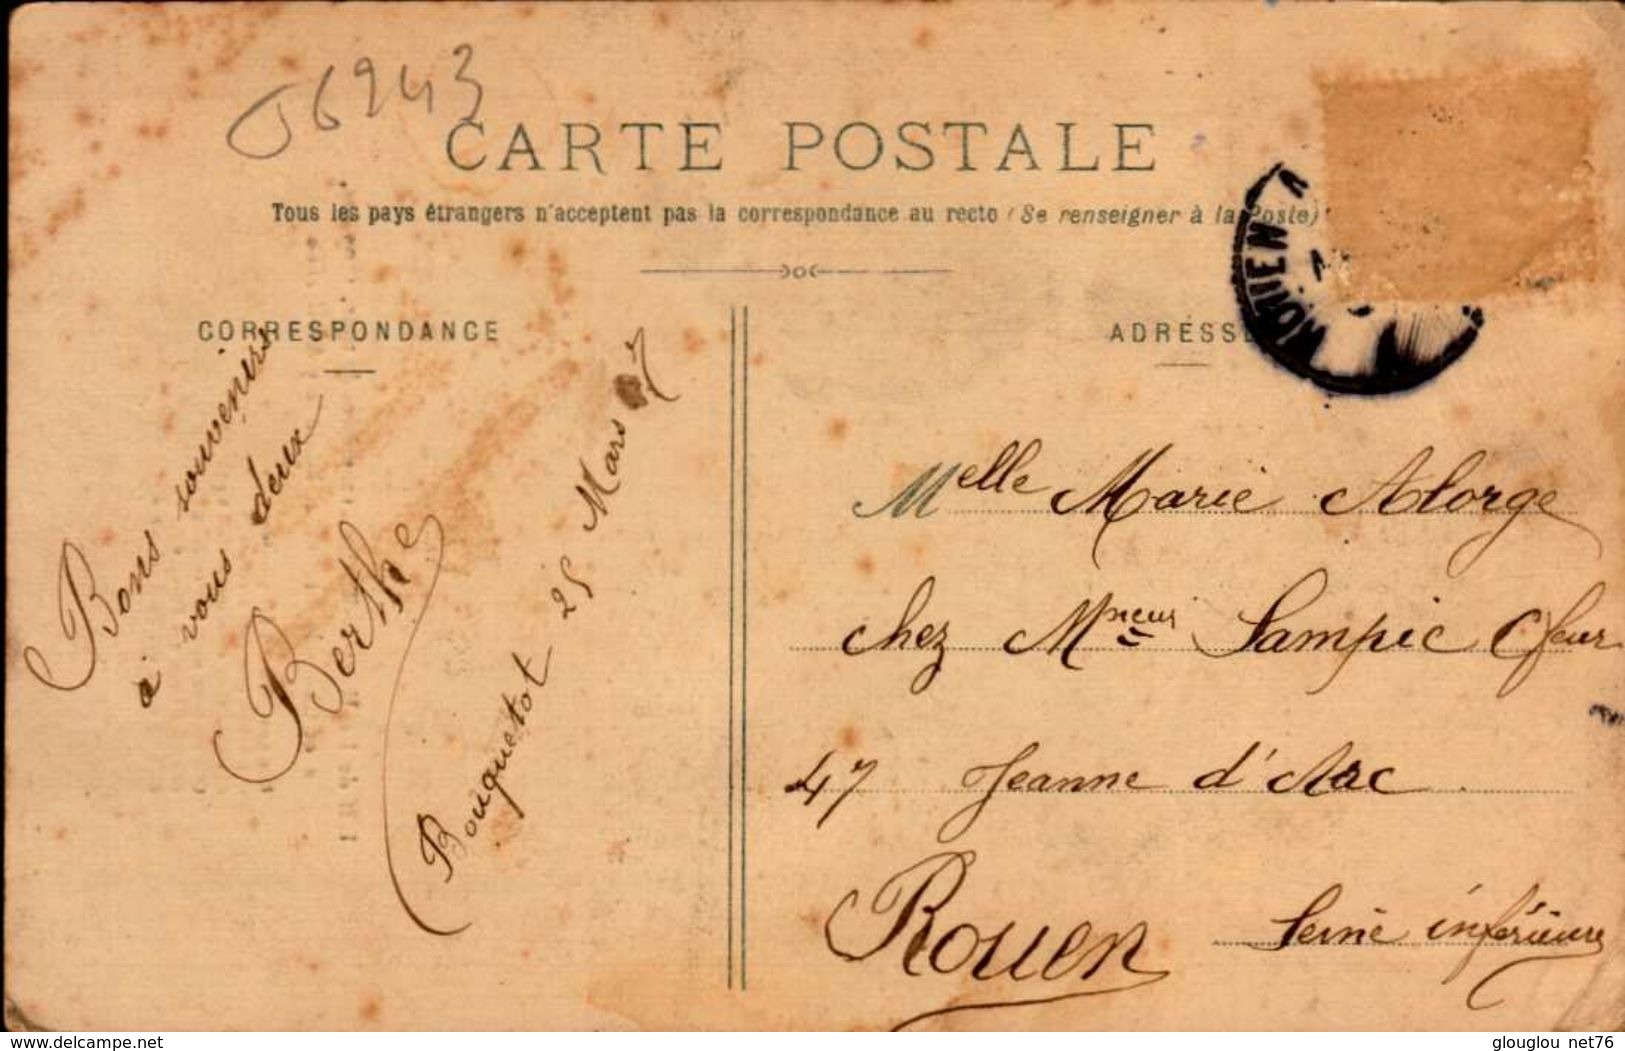 J6243
CARTE POSTALE
Tous les pays étrangers n'acceptent pas la correspondance au recto (Se renseigner à la Poste)
CORRESPONDANCE
Bons souvenirs
à vous deux
Berthe
Bouquetot 25 Mars 07
ADRESSE
ROUEN
Melle Marie Alorge
chez Mrieur Lampic
47 Jeanne d'Arc
Rouen Seine inférieure
www.delcampe.net
glouglou net76